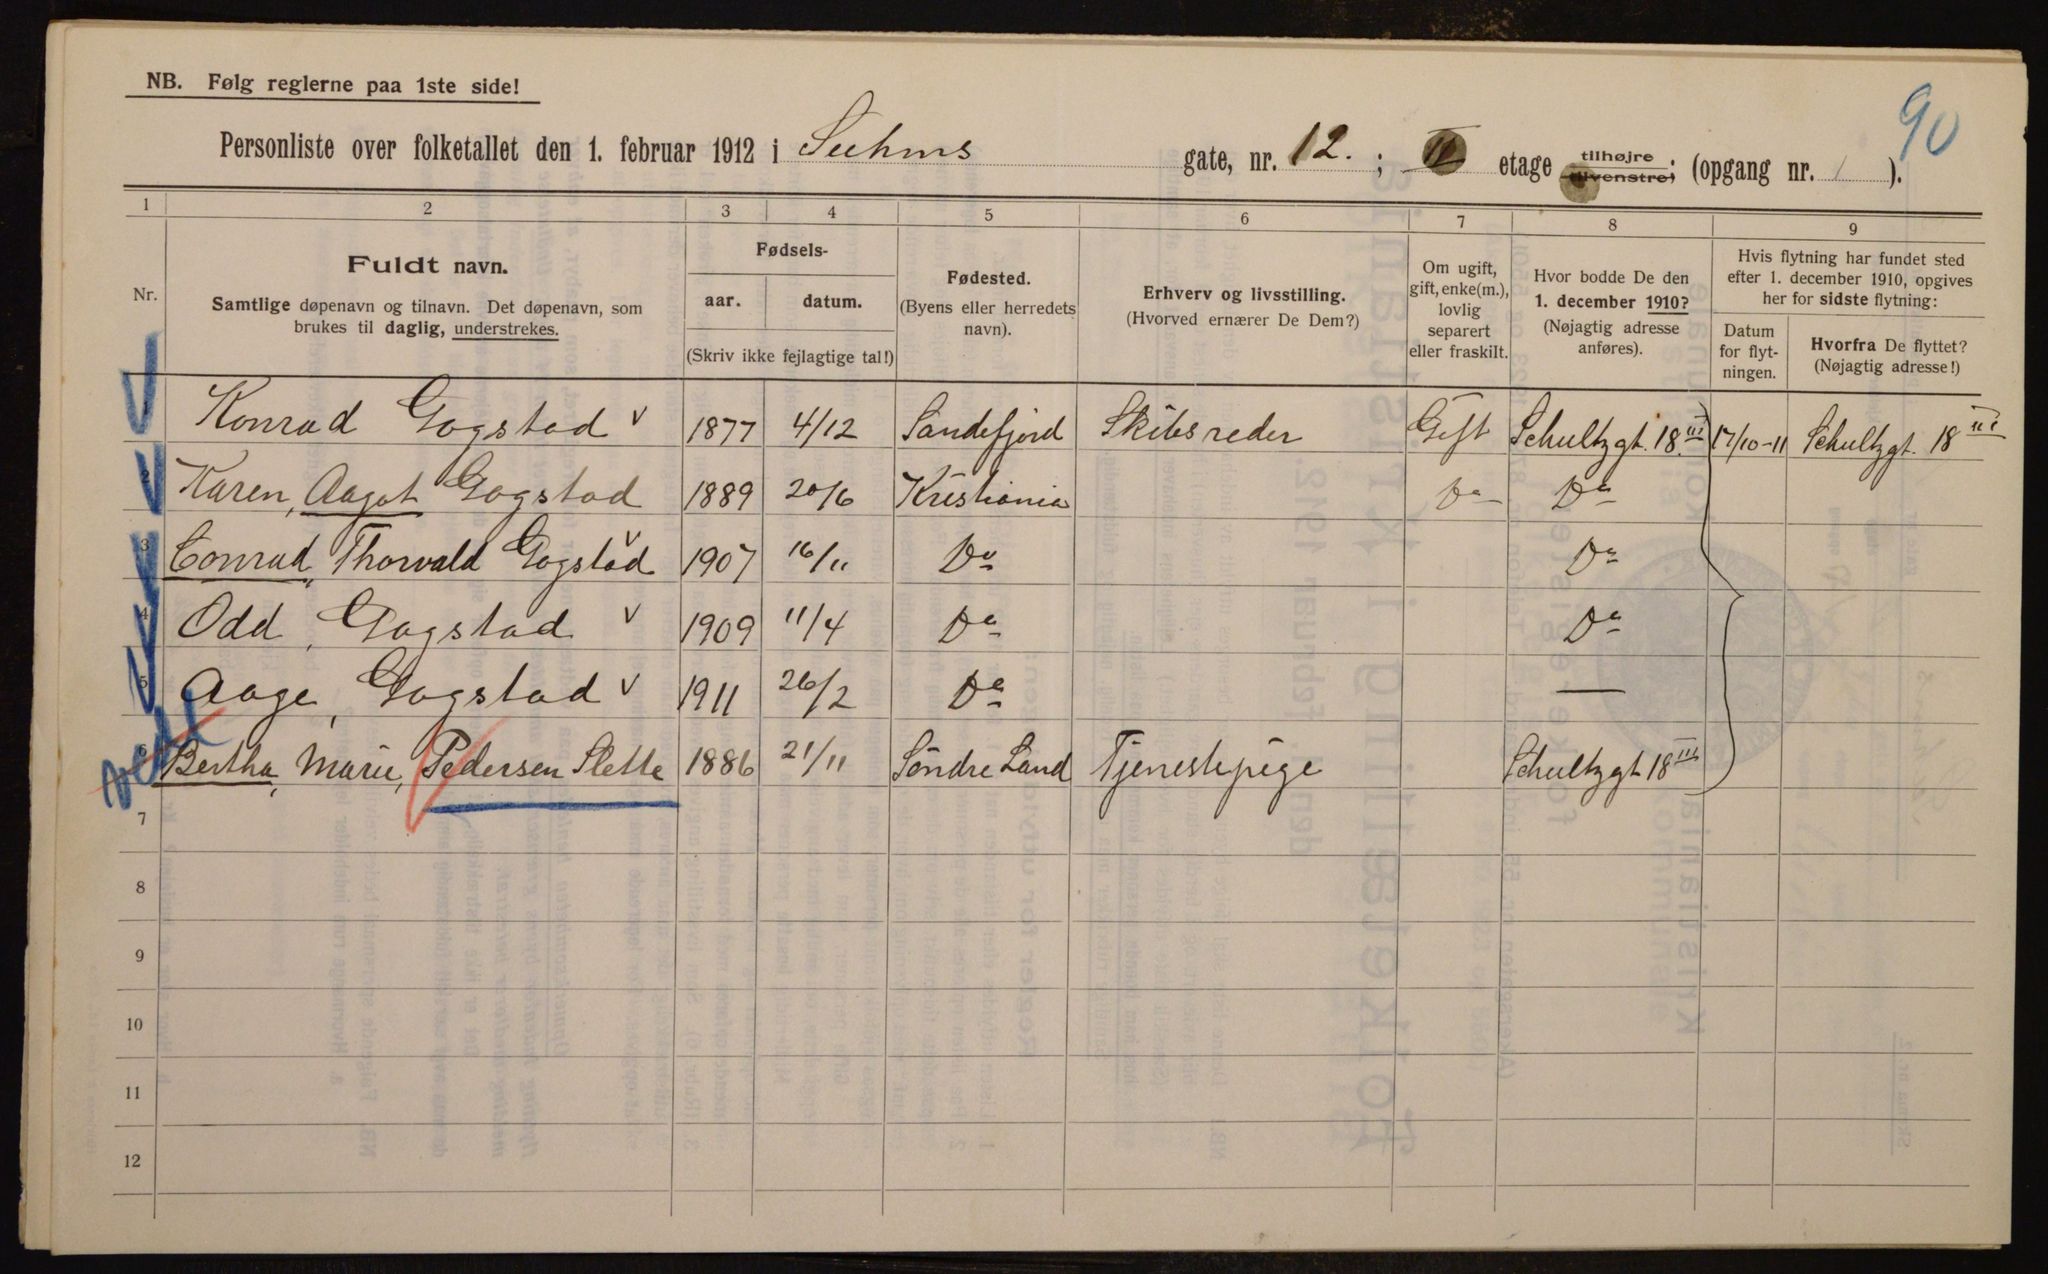 90
NB. Følg reglerne paa 1ste side!
Personliste over folketallet den 1. februar 1912 i Suhms gate, nr. 12. ; II etage tilhøjre tilvenstre; (opgang nr. 1 ).
1 2 3 4 5 6 7 8 9
Nr.
Fuldt navn.
Samtlige døpenavn og tilnavn. Det døpenavn, som
brukes til daglig, understrekes.
Fødsels-
aar. datum.
(Skriv ikke fejlagtige tal!)
Fødested.
(Byens eller herredets
navn).
Erhverv og livsstilling.
(Hvorved ernærer De Dem?)
Om ugift,
gift, enke(m.),
lovlig
separert
eller fraskilt.
Hvor bodde De den
1. december 1910?
(Nøjagtig adresse
anføres).
Hvis flytning har fundet sted
efter 1. december 1910, opgives
her for sidste flytning:
Datum
for flyt-
ningen.
Hvorfra De flyttet?
(Nøjagtig adresse!)
1 Konrad Gogstad v 1877 4/12 Sandefjord Skibsreder Gift Schultzgt. 18 III 17/10-11 Schultzgt. 18 III
2 Karen, Aagot Gogstad 1889 20/6 Kristiania Do Do
3 Conrad, Thorvald Gogstad v 1907 16/11 Do Do
4 Odd, Gogstad v 1909 11/4 Do Do
5 Aage, Gogstad v 1911 26/2 Do —
6 Bertha, Marie, Pedersen Slette 1886 21/11 Söndre Land Tjenestepige Schultzgt 18 III
7
8
9
10
11
12